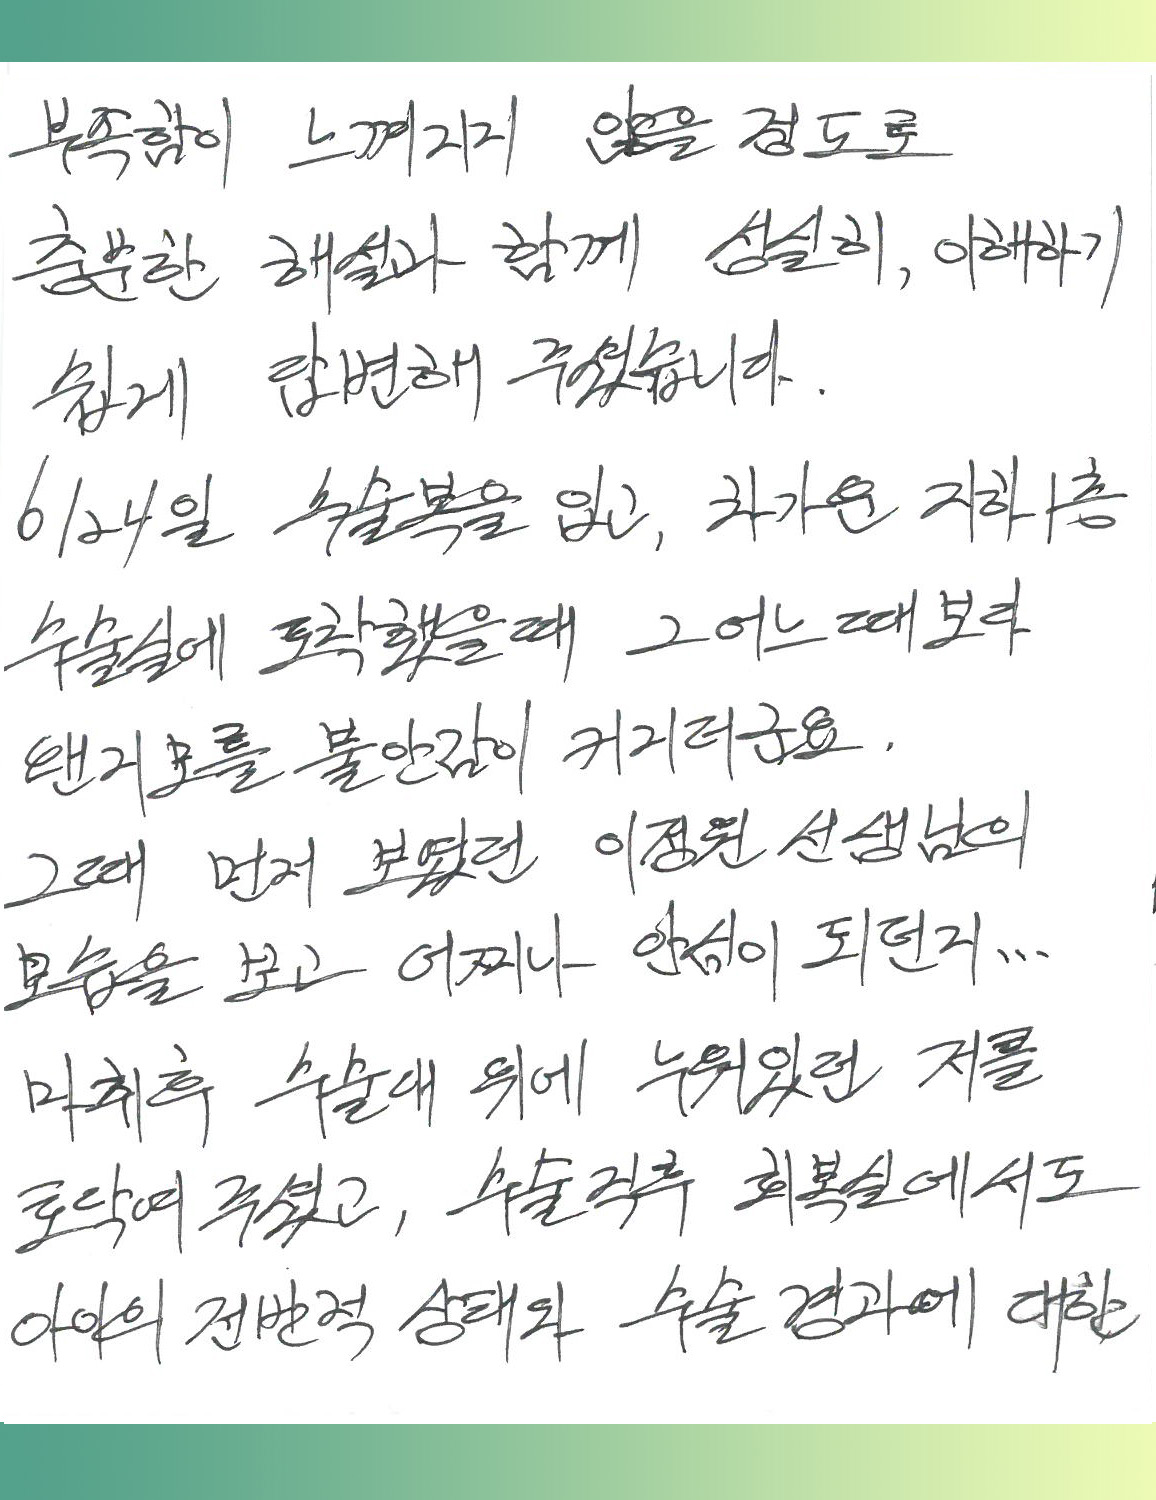 부족함이 느껴지지 않을 정도로
충분한 해설과 함께 성실히, 이해하기
쉽게 답변해 주셨습니다.
6/24일 수술복을 입고, 차가운 지하1층
수술실에 도착했을때 그 어느때보다
왠지모를 불안감이 커지더군요.
그때 먼저 보였던 이정원 선생님의
모습을 보고 어찌나 안심이 되던지...
마취후 수술대 위에 누워있던 저를
토닥여 주셨고, 수술직후 회복실에서도
아이의 전반적 상태와 수술 경과에 대한